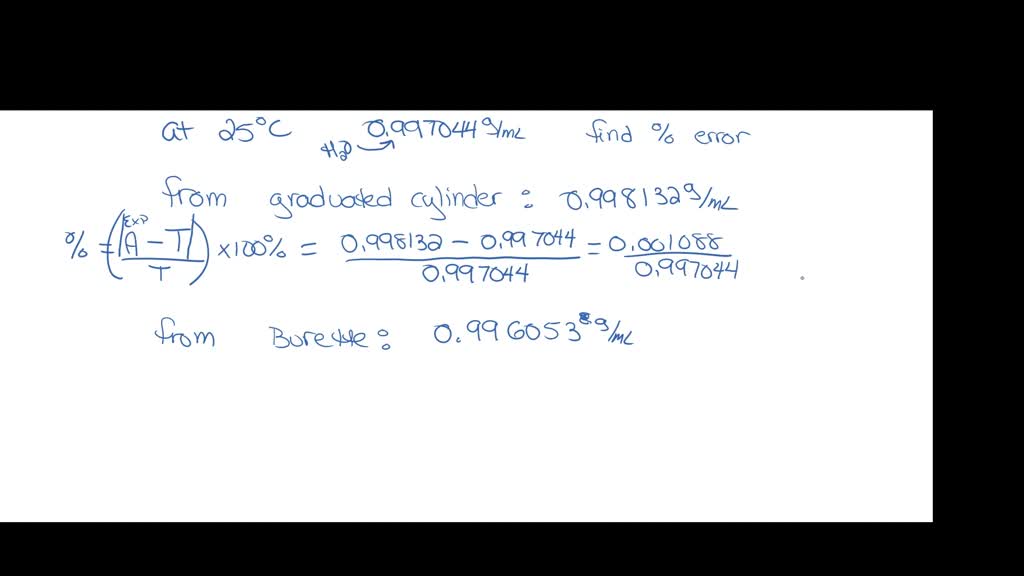 at 25°C H₂O 0.997044 g/mL find % error
from graduated cylinder : 0.998132 g/mL
% = (|A - T| / T) Exp × 100% = (0.998132 - 0.997044) / 0.997044 = 0.001088 / 0.997044
from Burette : 0.996053 g/mL